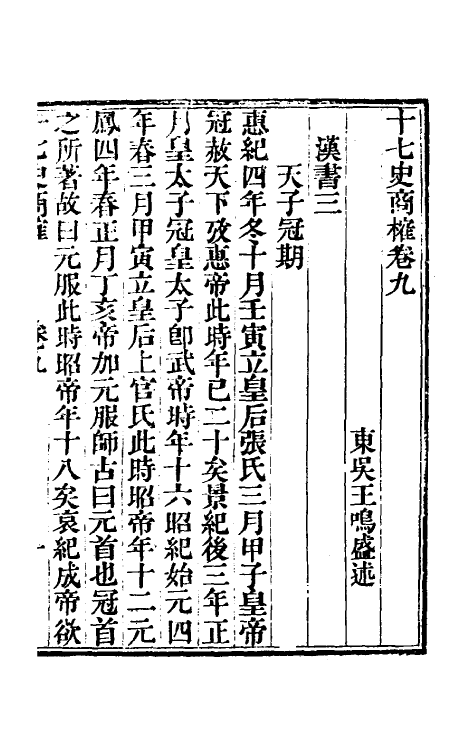 十七史商榷卷九
東吳王鳴盛述
漢書三
天子冠期
惠紀四年冬十月壬寅立皇后張氏三月甲子皇帝
冠赦天下攷惠帝此時年已二十矣景紀後三年正
月皇太子冠皇太子卽武帝時年十六昭紀始元四
年春三月甲寅立皇后上官氏此時昭帝年十二元
鳳四年春正月丁亥帝加元服師古曰元首也冠首
之所著故曰元服此時昭帝年十八矣哀紀成帝欲
十七史商榷 卷九 一